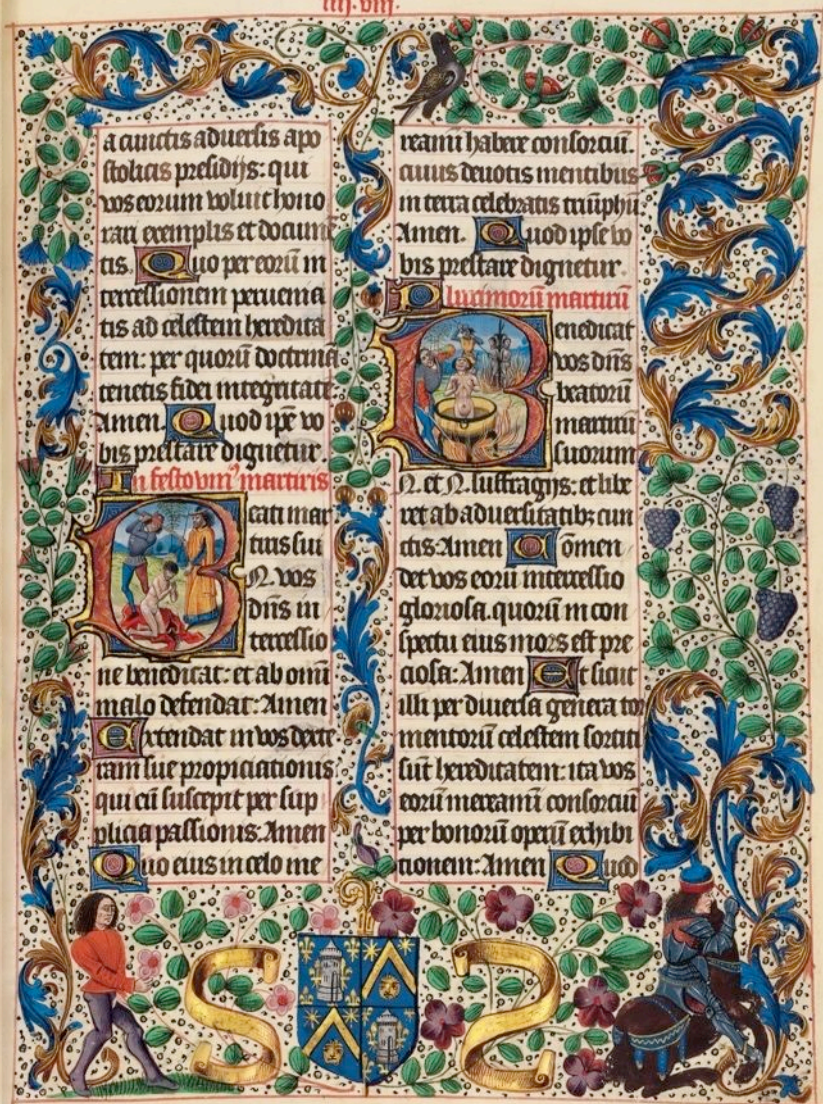 iiij.viij.
a cunctis aduersis apo
stolicis presidijs: qui
vos eorum voluit hono
rari exemplis et docum̄
tis. Quo per eorū in
tercessionem peruenia
tis ad celestem heredita
tem: per quorū doctrinā
tenetis fidei integritatē
Amen. Quod ip̄e vo
bis prestare dignetur.
In festo vniꝰ martiris
Beati mar
tiris sui
N. vos
dn̄s in
tercessio
ne benedicat: et ab omni
malo defendat: Amen
Extendat in vos dexte
ram sue propiciationis
qui eū suscepit per sup
plicia passionis: Amen
Quo eius in celo me
reami habere consorciū.
cuius deuotis mentibus
in terra celebratis triūphū
Amen. Quod ipse vo
bis prestare dignetur.
Plurimorū martirū
Benedicat
vos dn̄s
beatorū
martirū
suorum
N. et N. suffragijs: et libe
ret ab aduersitatibꝫ cun
ctis: Amen Cōmen
det vos eorū intercessio
gloriosa. quorū in con
spectu eius mors est pre
ciosa: Amen Et sicut
illi per diuersa genera tor
mentorū celestem sortiti
sūt hereditatem: ita vos
eorū mereami consorciū
per bonorū operū exhibi
tionem: Amen Quod